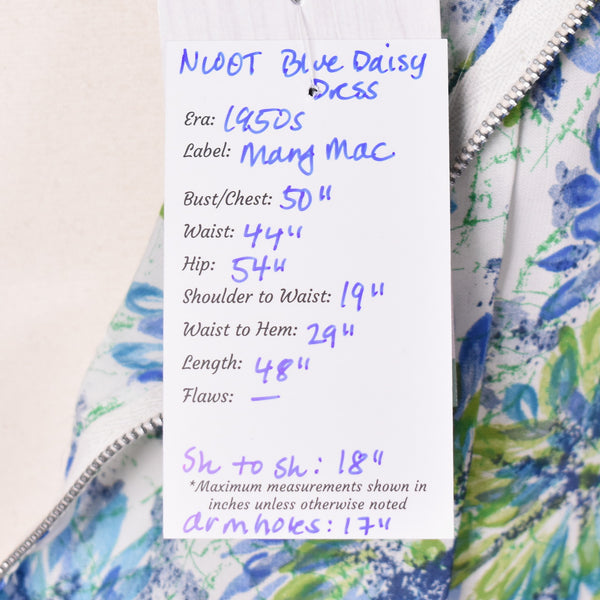 NWOT Blue Daisy
Dress
Era: 1950s
Label: Mang Mac
Bust/Chest: 50"
Waist: 44"
Hip: 54"
Shoulder to Waist: 19"
Waist to Hem: 29"
Length: 48"
Flaws: —
Sh to sh: 18"
*Maximum measurements shown in
inches unless otherwise noted
armholes: 17"